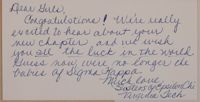 Dear Girls,
Congratulations! We're really
excited to hear about your
new chapter, and we wish
you all the luck in the world
Guess now we're no longer the
babies of Sigma Kappa
Much Love,
Sisters of Epsilon Chi
Virginia Tech